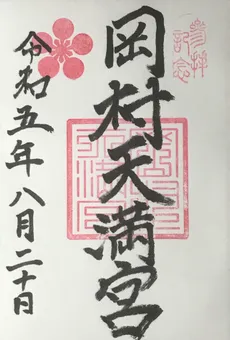 参拝
記念
岡村天満宮
令和五年八月二十日